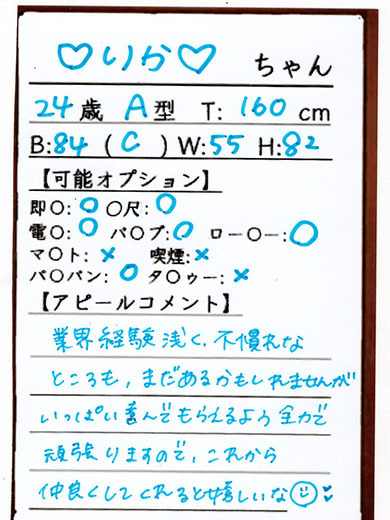 ♡りか♡ ちゃん
24歳 A型 T: 160cm
B:84 (C) W:55 H:82
【可能オプション】
即〇:○ 〇尺:○
電〇:○ バ〇ブ:○ ロー〇ー:○
マ〇ト:× 喫煙:×
パ〇パン:○ タ〇ゥー:×
【アピールコメント】
業界経験浅く、不慣れな
ところも、まだあるかもしれませんが
いっぱい喜んでもらえるよう全力で
頑張りますので、これから
仲良くしてくれると嬉しいな☺♥♥